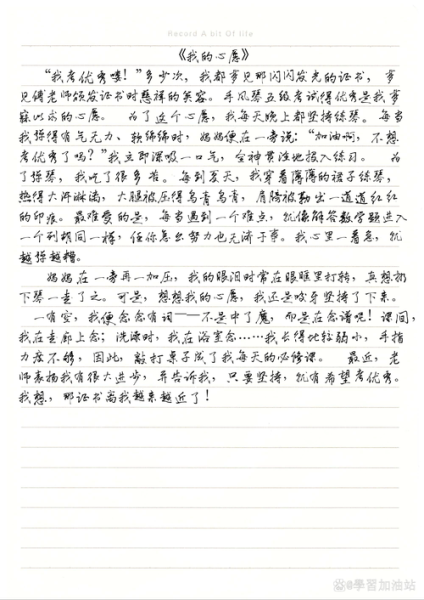 Record A bit Of life
《我的心愿》
“我考优秀喽！”多少次，我都梦见那闪闪发光的证书，梦
见傅老师颁发证书时慈祥的笑容。手风琴五级考试得优秀是我梦
寐以求的心愿。 为了这个心愿，我每天晚上都坚持练琴。每当
我弹得有气无力、软绵绵时，妈妈便在一旁说：“加油啊，不想
考优秀了吗？”我立即深吸一口气，全神贯注地投入练习。 为
了练琴，我吃了很多苦。每到夏天，我穿着薄薄的裙子练琴，
热得大汗淋漓，大腿被压得乌青乌青，肩膀被勒出一道道红红
的印痕。最难受的是，每当遇到一个难点，就像解答数学题进入
一个死胡同一样，任你怎么努力也无济于事。我心里一着急，就
越弹越糟。
妈妈在一旁再一加压，我的眼泪时常在眼眶里打转，真想扔
下琴一走了之。可是，想想我的心愿，我还是咬牙坚持了下来。
一有空，我便念念有词——不是中了魔，而是在念谱呢！课间，
我在走廊上念；洗澡时，我在浴室念……我长得比较弱小，手指
力度不够，因此，敲打桌子成了我每天的必修课。 最近，老
师表扬我有很大进步，并告诉我，只要坚持，就有希望考优秀。
我想，那证书离我越来越近了！
@學習加油站